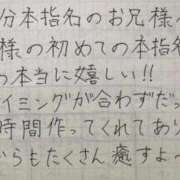 分本指名のお兄様
様の初めての本指名
の本当に嬉しい!!
イミングが合わずだっ
時間作ってくれてあり
からもたくさん癒すよ〜